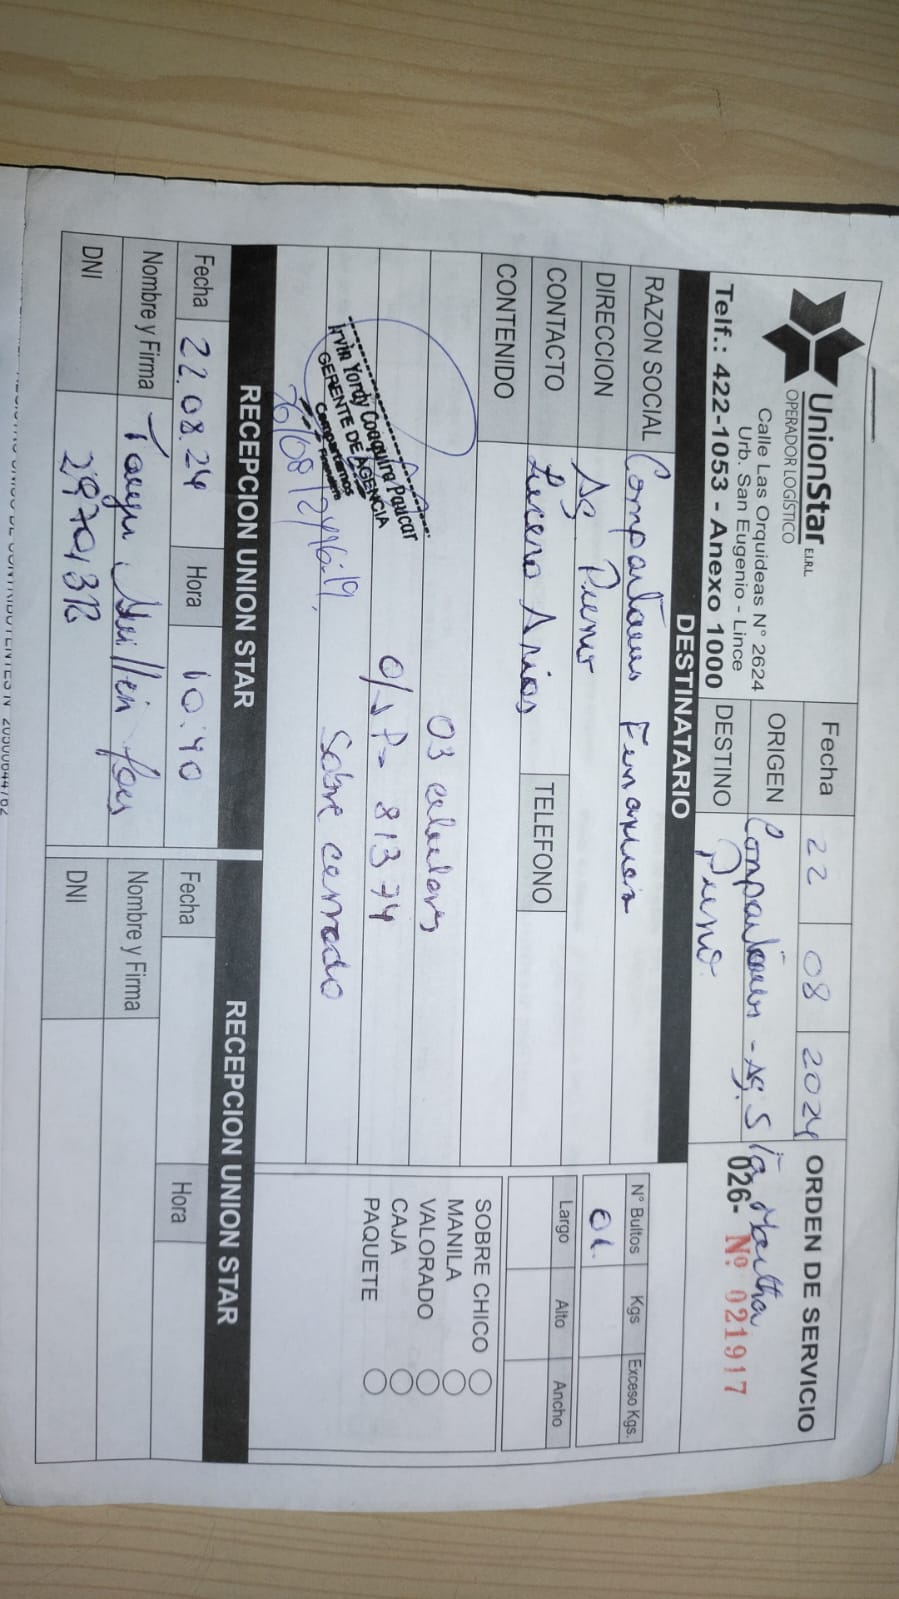 UnionStar E.I.R.L.
OPERADOR LOGÍSTICO
Calle Las Orquideas N° 2624
Urb. San Eugenio - Lince
Telf.: 422-1053 - Anexo 1000
Fecha 22 08 2024
ORIGEN Compartamos - Ag. Sta Martha
DESTINO Puno.
ORDEN DE SERVICIO
026- Nº 021917
DESTINATARIO
RAZON SOCIAL Compartamos Financiera
DIRECCION Ag Puno
CONTACTO Lucero Arias TELEFONO
CONTENIDO
03 celulares
O/S P- 81374
Sobre cerrado
Irvin Yordy Coaquira Paucar
GERENTE DE AGENCIA
Compartamos
Financiera
26/08/24 16:19.
N° Bultos Kgs Exceso Kgs.
01.
Largo Alto Ancho
SOBRE CHICO
MANILA
VALORADO
CAJA
PAQUETE
RECEPCION UNION STAR
Fecha 22.08.24 Hora 10:40
Nombre y Firma Guillén
DNI
RECEPCION UNION STAR
Fecha Hora
Nombre y Firma
DNI